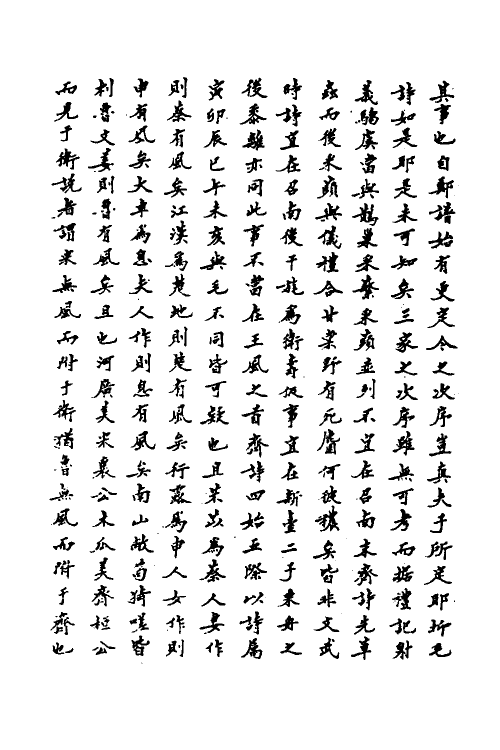 其事也自鄭譜始有更定今之次序豈真夫子所定耶抑毛
詩如是耶是未可知矣三家之次序雖無可考而據禮記射
義騶虞當與鵲巢采蘩采蘋並列不宜在召南末齊詩先草
蟲而後采蘋與儀禮合甘棠野有死麕何彼襛矣皆非文武
時詩宜在召南後干旄為衛壽伋事宜在新臺二子乘舟之
後黍離亦同此事不當在王風之首齊詩四始五際以詩屬
寅卯辰巳午未亥與毛不同皆可疑也且芣苢為蔡人妻作
則蔡有風矣江漢為楚地則楚有風矣行露為申人女作則
申有風矣大車為息夫人作則息有風矣南山敝笱猗嗟皆
刺魯文姜則魯有風矣且也河廣美宋襄公木瓜美齊桓公
而見于衛說者謂宋無風而附于衛猶魯無風而附于齊也